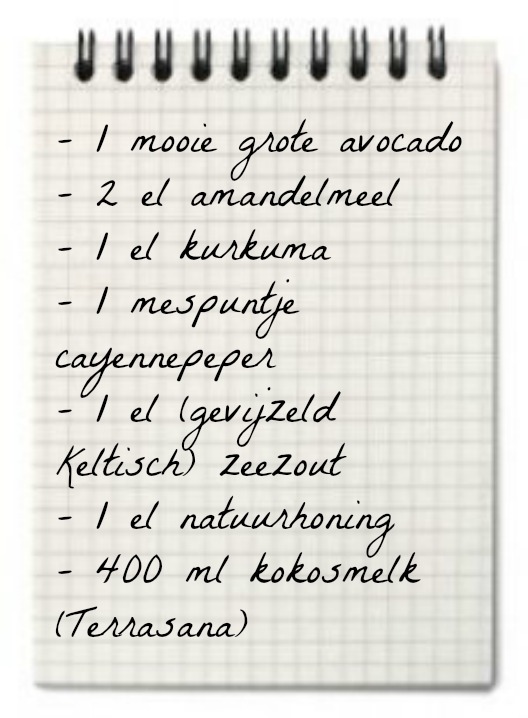 - 1 mooie grote avocado
- 2 el amandelmeel
- 1 el kurkuma
- 1 mespuntje
cayennepeper
- 1 el (gevijzeld
Keltisch) zeezout
- 1 el natuurhoning
- 400 ml kokosmelk
(Terrasana)